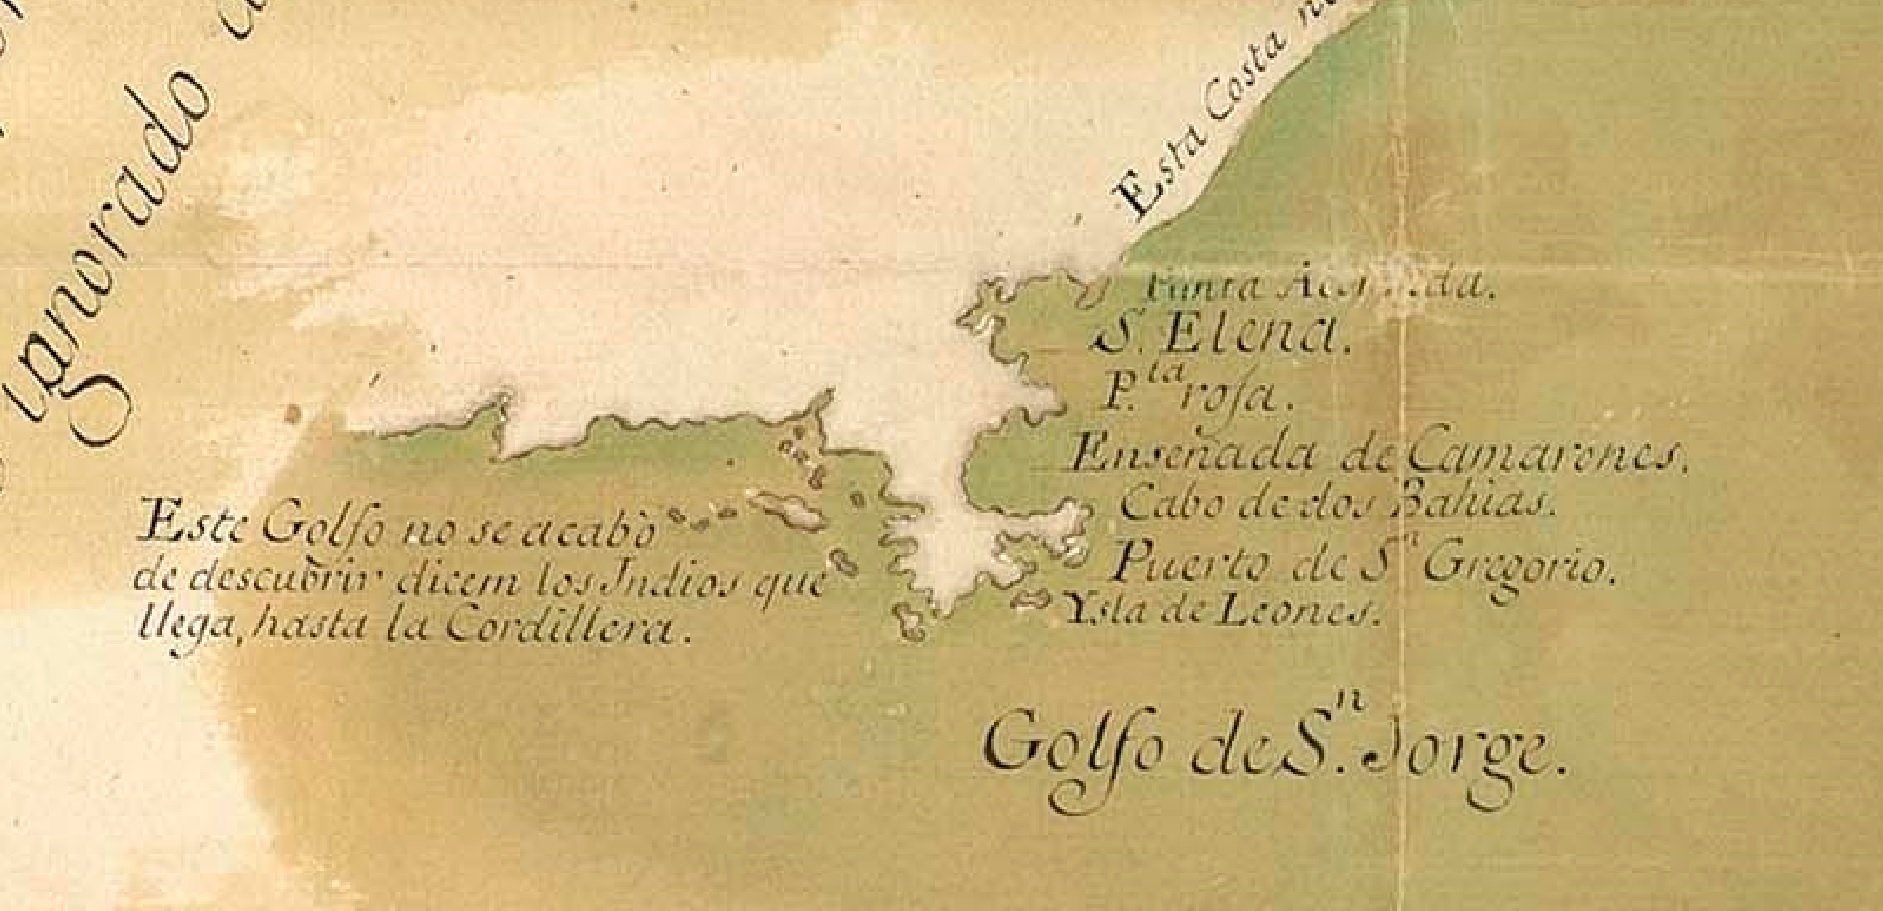 ignorado
Esta Costa
Punta
S. Elena.
P.ta rosa.
Ensenãda de Camarones.
Cabo de dos Bahias.
Puerto de Sn Gregorio.
Ysla de Leones.
Este Golfo no se acabò
de descubrir dicem los Indios que
llega, hasta la Cordillera.
Golfo de S.n Jorge.